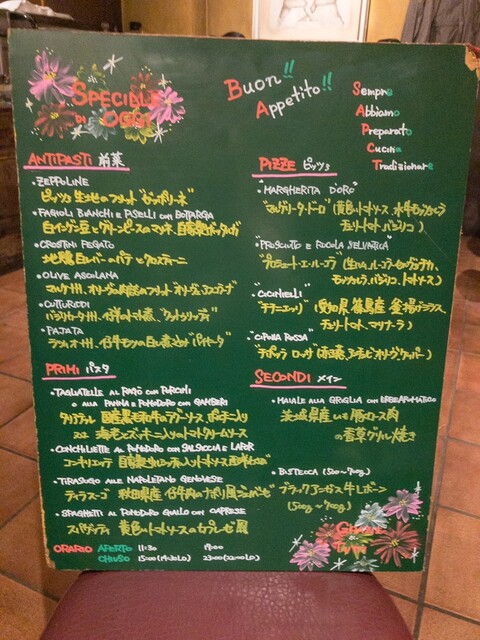 SPECIALE
DI OGGI
Buon!!
Appetito!!
Sempre
Abbiamo
Preparato
Cucina
Tradizionare
ANTIPASTI 前菜
・ZEPPOLINE
ピッツァ生地のフリット"ゼッポリーネ"
・FAGIOLI BIANCHI E PISELLI CON BOTTARGA
白インゲン豆とグリーンピースのマリネ、自家製ボッタルガ
・CROSTINI FEGATO
地鶏白レバーのパテとクロスティーニ
・OLIVE ASCOLANA
マルケ州、オリーヴの肉詰めフリット
・CUTTURIDDI
バジリカータ州、仔羊のトマト煮、"クットゥリッディ"
・PAJATA
ラツィオ州、仔牛モツの白い煮込み"パイヤータ"
PRIMI パスタ
・TAGLIATELLE AL RAGÙ CON PORCINI
O ALLA PANNA E POMODORO CON GAMBERI
タリアテッレ 国産黒毛和牛のラグーソース ポルチーニ入り
又は 海老とズッキーニ入りのトマトクリームソース
・CONCHIGLIETTE AL POMODORO CON SALSICCIA E
コンキリエッテ 自家製サルシッチャ入りトマトソース
・TIRASUGO ALLE NAPOLETANO GENOVESE
ティラスーゴ 秋田県産 仔牛肉のナポリ風ジェノベーゼ
・SPAGHETTI AL POMODORO GIALLO CON CAPRESE
スパゲッティ 黄色いトマトソースのカプレーゼ風
ORARIO APERTO 11:30 17:00
CHIUSO 15:00(14:30L.O) 23:00(22:00L.O)
PIZZE ピッツァ
・"MARGHERITA D'ORO"
"マルゲリータ・ドーロ" (黄色いトマトソース、水牛モッツァレラ
チェリートマト、バジリコ)
・"PROSCIUTTO E RUCOLA SELVATICA"
"プロシュート・エ・ルーコラ" (生ハム、ルーコラ・セルヴァティカ、
モッツァレラ、バジリコ、トマトソース)
・"CICINIELLI"
"チチニエッリ" (愛知県 篠島産 釜揚げシラス、
チェリートマト、マリナーラ)
・"CIPOLLA ROSSA"
"チポッラ ロッサ" (赤玉ネギ、アンチョビ、オリーヴ、ケッパー)
SECONDI メイン
・MAIALE ALLA GRIGLIA CON ERBE AROMATICO
茨城県産いも豚ロース肉
の香草グリル焼き
・BISTECCA (500~700g)
ブラックアンガス牛Lボーン
(500g~700g)